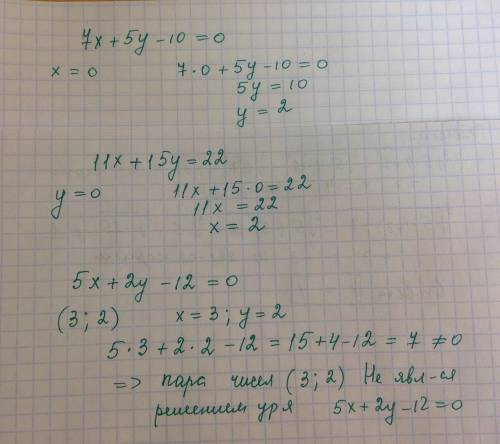 7x+5y-10=0
x=0 7·0+5y-10=0
5y=10
y=2
11x+15y=22
y=0 11x+15·0=22
11x=22
x=2
5x+2y-12=0
(3;2) x=3; y=2
5·3+2·2-12=15+4-12=7≠0
=> пара чисел (3;2) Не явл-ся
решением ур-я 5x+2y-12=0